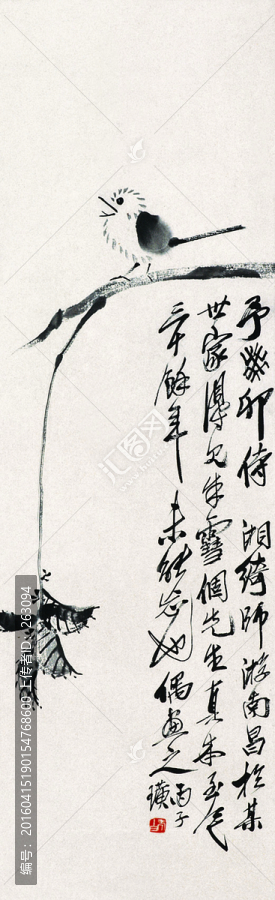 予癸卯侍湘绮師游南昌於某
世家得見朱雪個先生真本至今
三十餘年未能忘也偶畫之
丙子
璜
汇图网
编号:20160415190154768600 上传者ID:263094